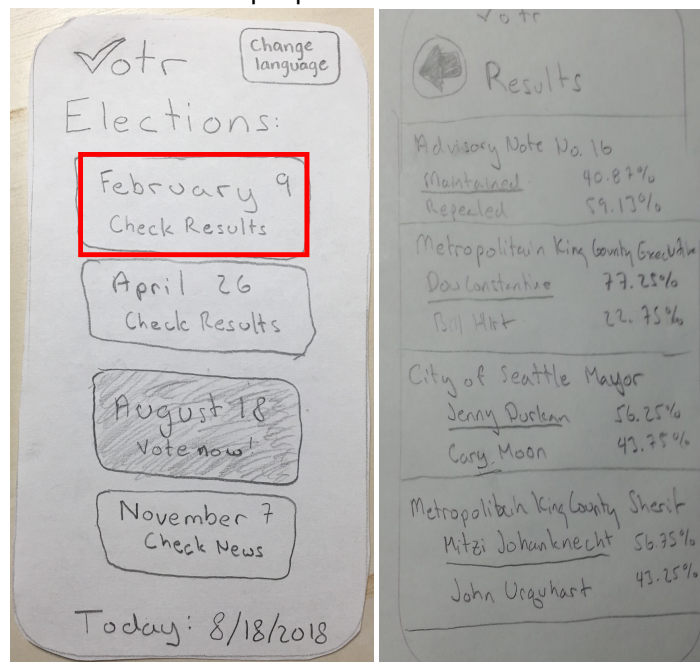 Votr
Change
language
Elections:
February 9
Check Results
April 26
Check Results
August 18
Vote now!
November 7
Check News
Today: 8/18/2018
Votr
Results
Advisory Note No. 16
Maintained 40.87%
Repealed 59.13%
Metropolitain King County Executive
Dow Constantine 77.25%
Bill Hirt 22.75%
City of Seattle Mayor
Jenny Durkan 56.25%
Cary Moon 43.75%
Metropolitain King County Sherif
Mitzi Johanknecht 56.75%
John Urquhart 43.25%